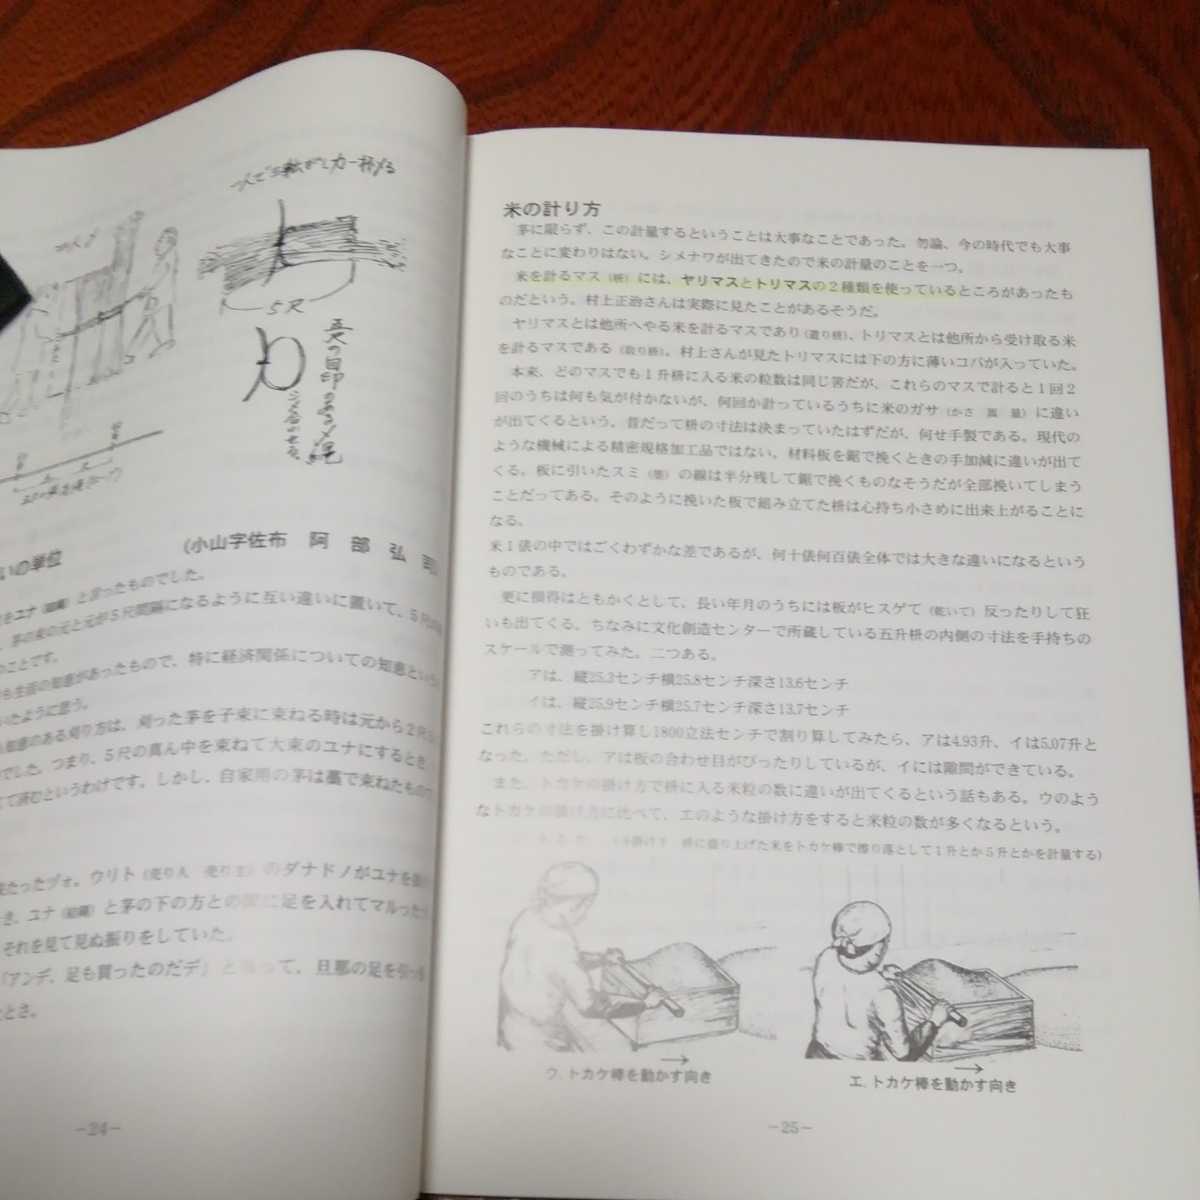 一人で
5尺
五尺の目印のある〆縄
(小山字佐布 阿部弘司)
いの単位
をユナ(結縄)と言ったものでした。
、茅の束の元と元が5尺間隔になるように互い違いに置いて、5尺の
のことです。
も生活の知恵があったもので、特に経済関係についての知恵という
いたように思う。
知恵のある刈り方は、刈った茅を子束に束ねる時は元から2尺
でした。つまり、5尺の真ん中を束ねて大束のユナにするとき
て済むというわけです。しかし、自家用の茅は藁で束ねたもので
たったヅォ。ウリト(売り人 売り主)のダナドノがユナを
き、ユナ(結縄)と茅の下の方との間に足を入れてマルった
それを見て見ぬ振りをしていた。
「アンデ、足も買ったのだデ」と言って、旦那の足を引っ
とさ。
-24-
米の計り方
茅に限らず、この計量するということは大事なことであった。勿論、今の時代でも大事
なことに変わりはない。シメナワが出てきたので米の計量のことを一つ。
米を計るマス(枡)には、ヤリマスとトリマスの2種類を使っているところがあったも
のだという。村上正治さんは実際に見たことがあるそうだ。
ヤリマスとは他所へやる米を計るマスであり(遣り枡)、トリマスとは他所から受け取る米
を計るマスである(取り枡)。村上さんが見たトリマスには下の方に薄いコバが入っていた。
本来、どのマスでも1升枡に入る米の粒数は同じ筈だが、これらのマスで計ると1回2
回のうちは何も気が付かないが、何回か計っているうちに米のガサ(かさ 嵩 量)に違い
が出てくるという。昔だって枡の寸法は決まっていたはずだが、何せ手製である。現代の
ような機械による精密規格加工品ではない。材料板を鋸で挽くときの手加減に違いが出て
くる。板に引いたスミ(墨)の線は半分残して鋸で挽くものなそうだが全部挽いてしまう
ことだってある。そのように挽いた板で組み立てた枡は心持ち小さめに出来上がることに
なる。
米1俵の中ではごくわずかな差であるが、何十俵何百俵全体では大きな違いになるという
ものである。
更に損得はともかくとして、長い年月のうちには板がヒスゲて(乾いて)反ったりして狂
いも出てくる。ちなみに文化創造センターで所蔵している五升枡の内側の寸法を手持ちの
スケールで測ってみた。二つある。
アは、縦25.3センチ横25.8センチ深さ13.6センチ
イは、縦25.9センチ横25.7センチ深さ13.7センチ
これらの寸法を掛け算し1800立法センチで割り算してみたら、アは4.93升、イは5.07升と
なった。ただし、アは板の合わせ目がぴったりしているが、イには隙間ができている。
また、トカケの掛け方で枡に入る米粒の数に違いが出てくるという話もある。ウのよう
なトカケの掛け方に比べて、エのような掛け方をすると米粒の数が多くなるという。
枡に盛り上げた米をトカケ棒で擦り落として1升とか5升とかを計量する)
ウ.トカケ棒を動かす向き
エ.トカケ棒を動かす向き
-25-